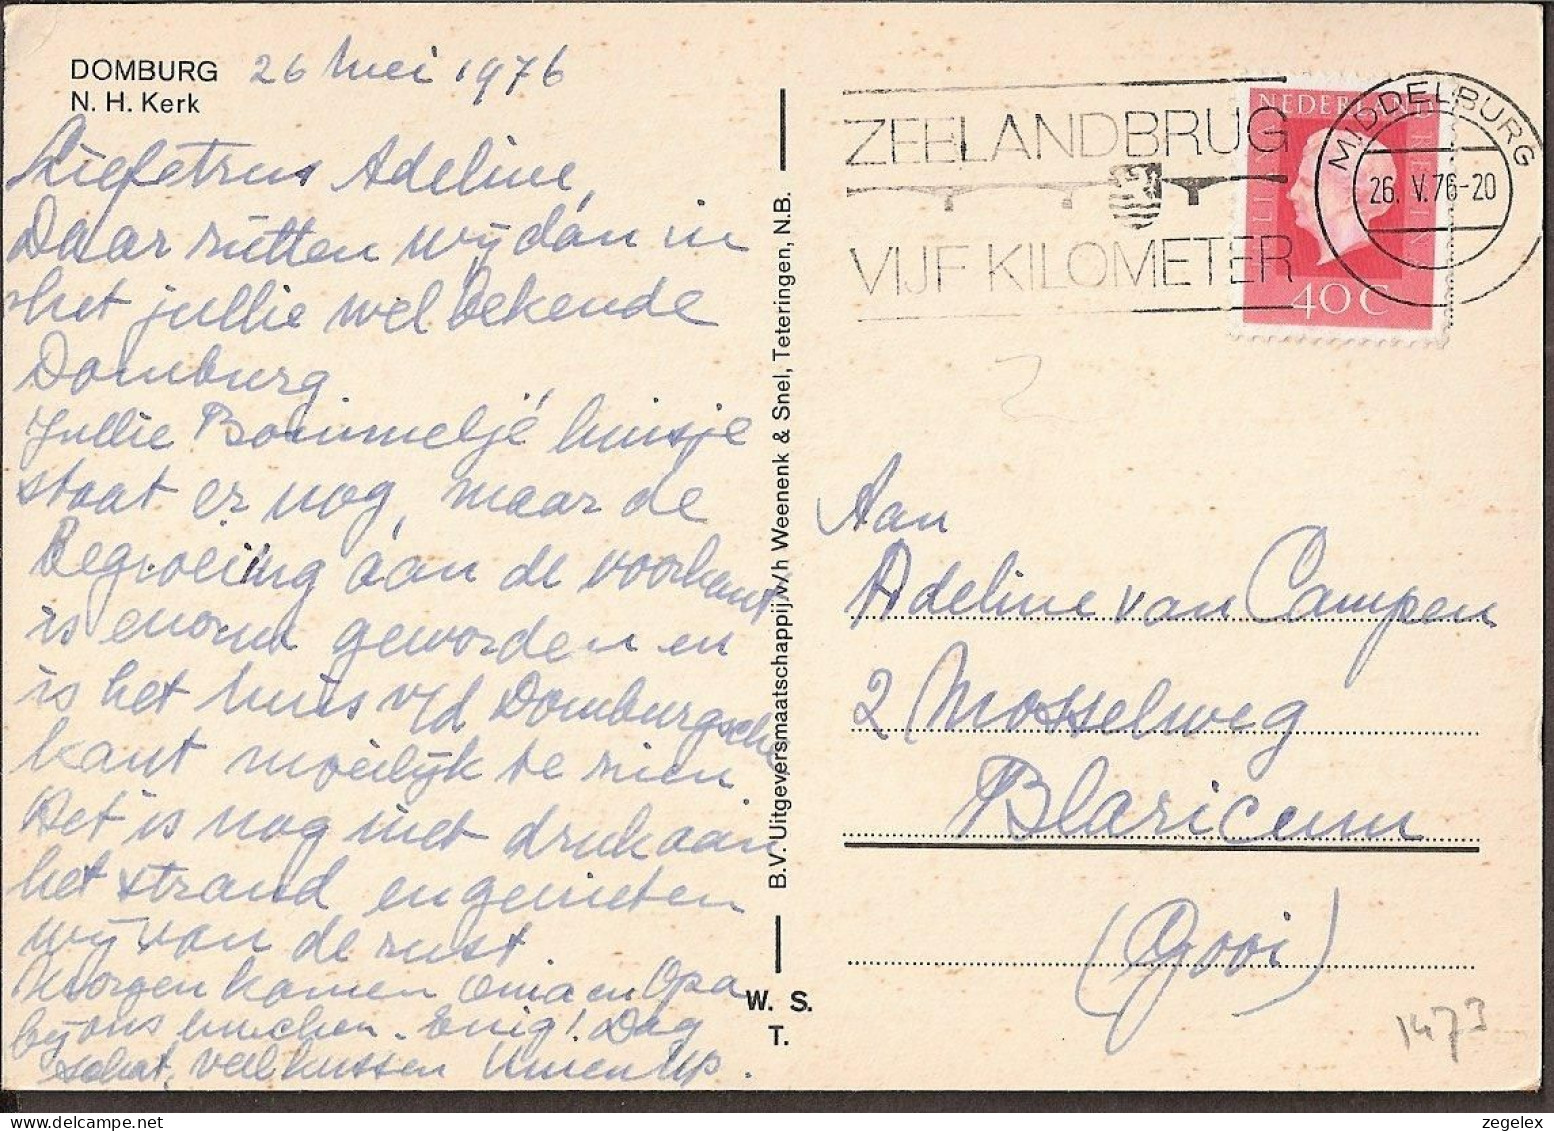 DOMBURG 26 Mei 1976
N. H. Kerk
Adeline,
Daar zitten wij dan in
het jullie wel bekende
Domburg
Jullie Bommeljé huisje
staat er nog, maar de
Begroeiing aan de voorkant
is enorm geworden en
is het huis v/d Domburgsche
kant moeilijk te zien.
Het is nog niet druk aan
het strand en genieten
wij van de rust.
Morgen komen Oma en Opa
bij ons lunchen. Enig! Dag
schat, veel kussen
B.V. Uitgeversmaatschappij v/h Weenenk & Snel, Teteringen, N.B.
W. S.
T.
ZEELANDBRUG
VIJF KILOMETER
NEDERLAND
JULIANA REGINA
40 C
MIDDELBURG
26. V. 76-20
Aan
Adeline van Campen
2 Mosselweg
Blaricum
(Gooi)
1473
zegelex